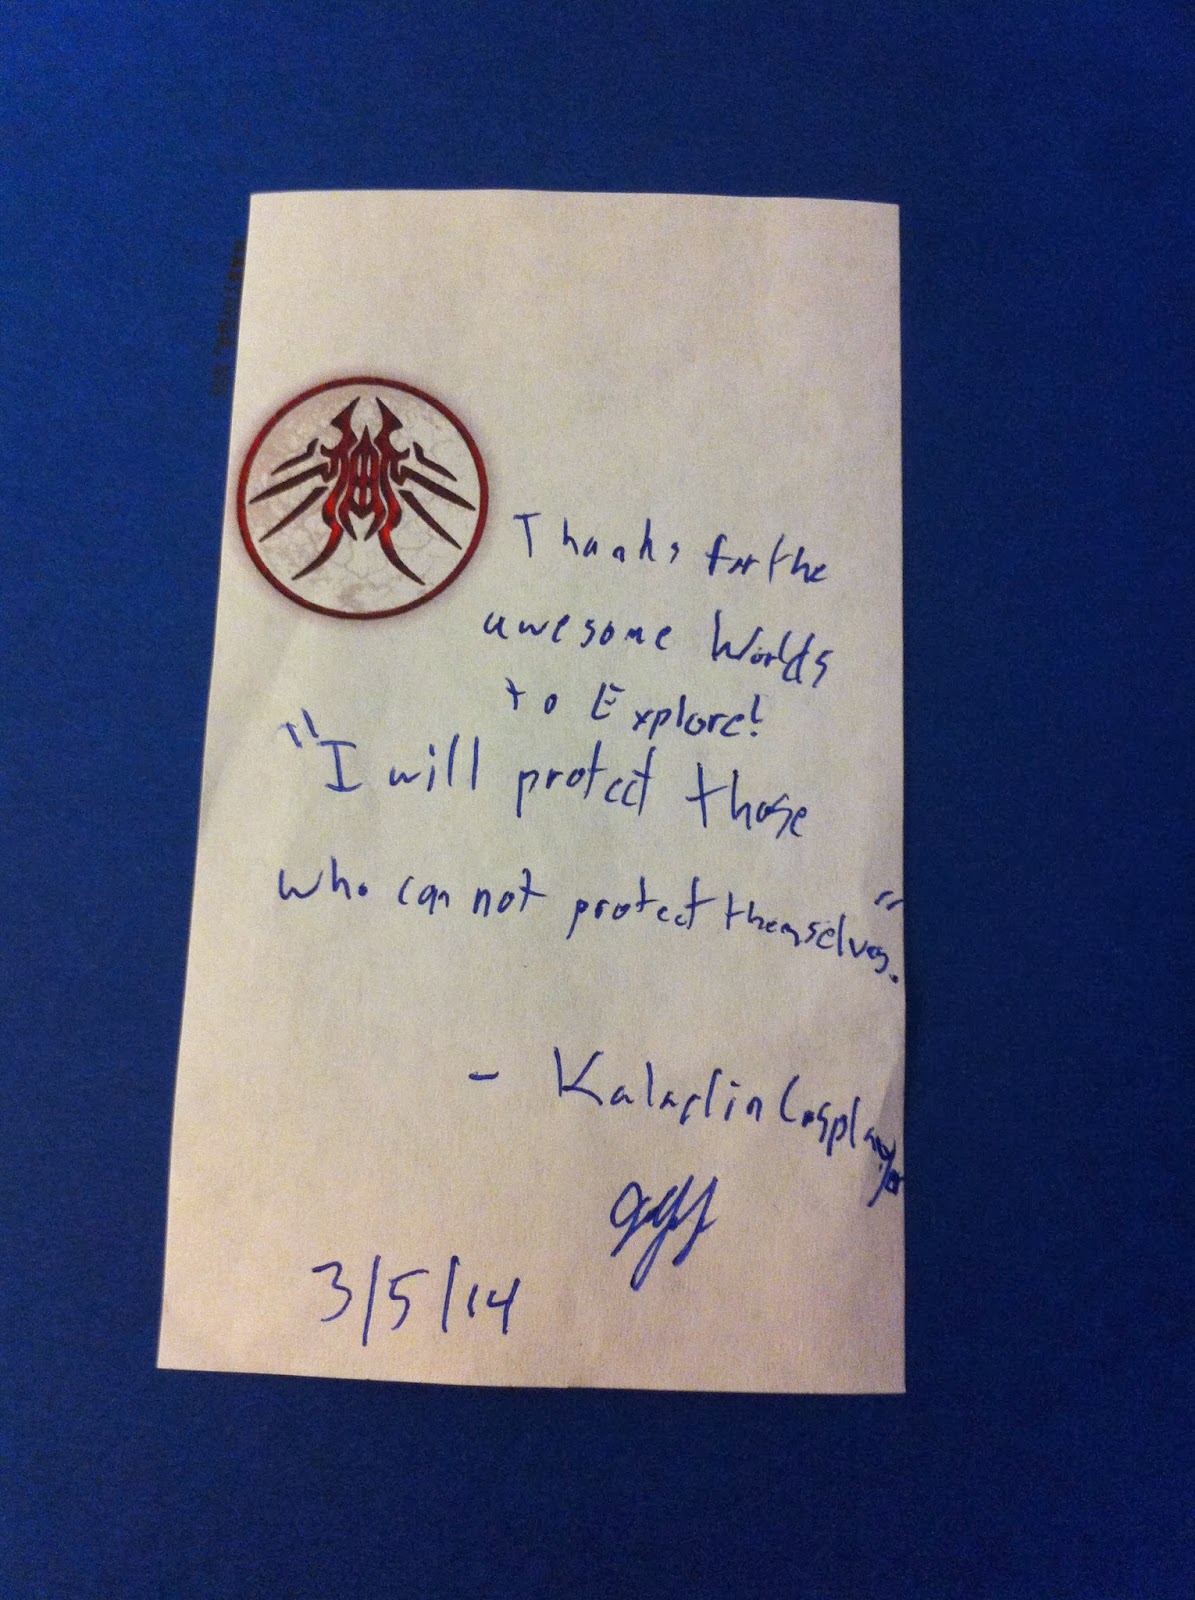 Thanks for the
awesome Worlds
to Explore!
"I will protect those
who can not protect themselves."
- Kaladin Cosplayer
3/5/14